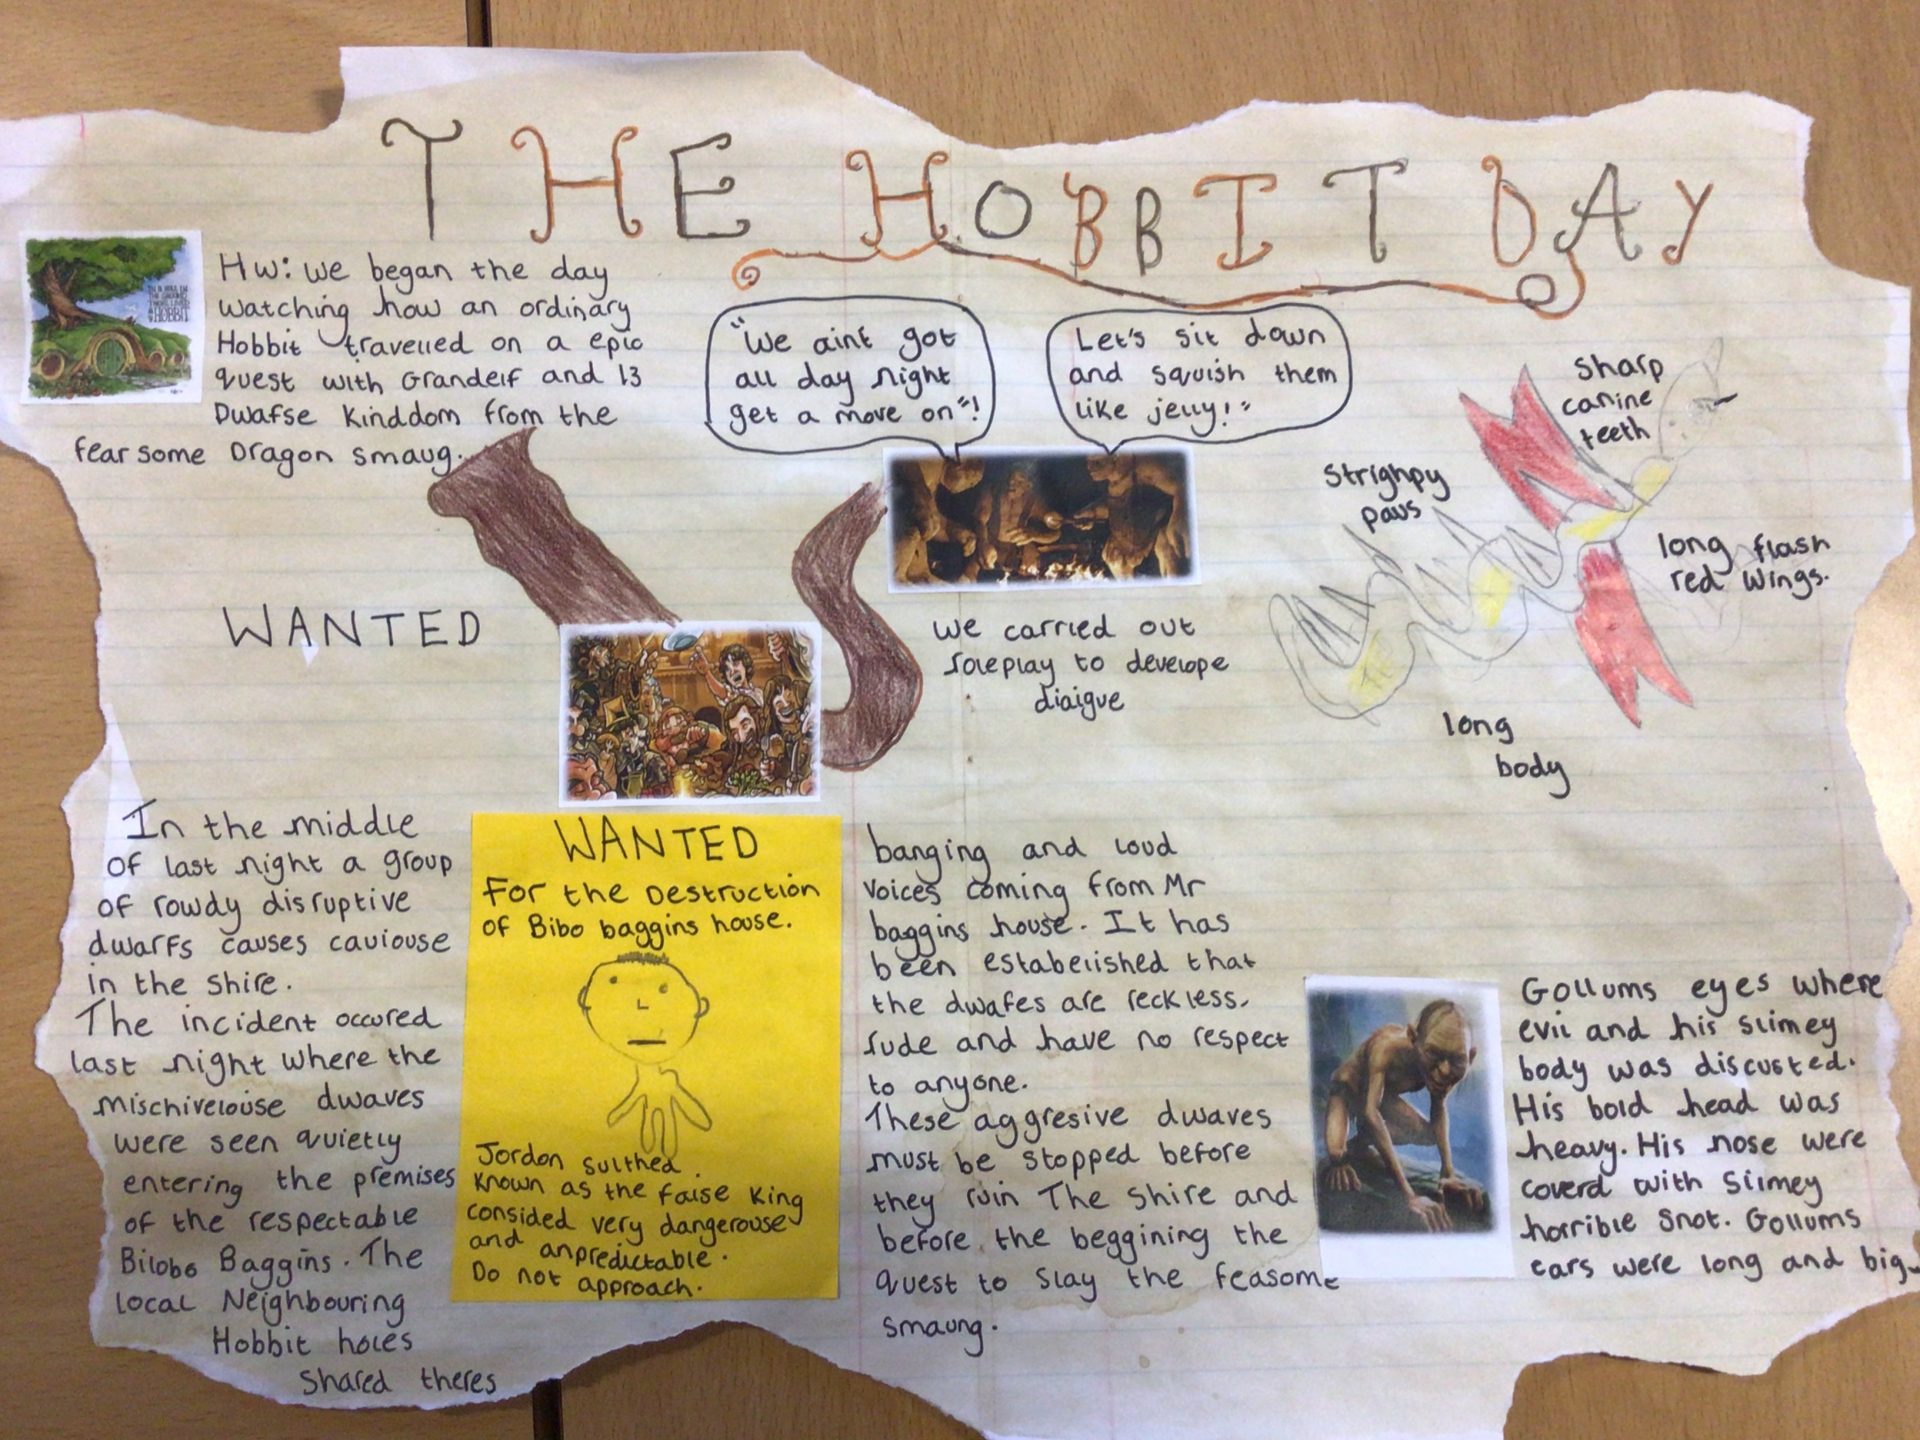 THE HOBBIT DAY
IN A HOLE IN
THE GROUND
THERE LIVED
A HOBBIT
HW: we began the day
watching how an ordinary
Hobbit travelled on a epic
quest with Grandelf and 13
Dwafse Kinddom from the
fearsome Dragon smaug.
"We aint got
all day night
get a move on"!
Let's sit down
and squish them
like jelly!"
We carried out
roleplay to develope
diaigue
Sharp
canine
teeth
Strighpy
paws
long flash
red wings.
long
body
WANTED
In the middle
of last night a group
of rowdy disruptive
dwarfs causes caviouse
in the shire.
The incident occured
last night where the
mischivelouse dwaves
were seen quietly
entering the premises
of the respectable
Bilobo Baggins. The
local Neighbouring
Hobbit holes
Shared theres
WANTED
For the Destruction
of Bibo baggins house.
Jordon sulthed.
Known as the false King
consided very dangerouse
and anpredictable.
Do not approach.
banging and loud
voices coming from Mr
baggins house. It has
been estabelished that
the dwafes are reckless.
rude and have no respect
to anyone.
These aggresive dwaves
must be stopped before
they ruin The Shire and
before the beggining the
quest to slay the feasome
smaung.
Gollums eyes where
evil and his slimey
body was discusted.
His bold head was
heavy. His nose were
coverd with slimey
horrible snot. Gollums
ears were long and big.